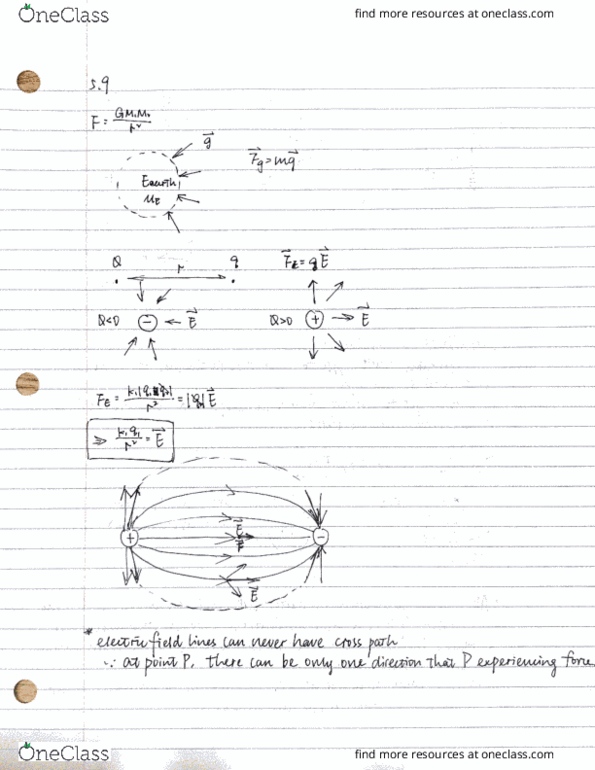 OneClass find more resources at oneclass.com
5.9
F = GM₁M₂/r²
g⃗
F⃗g = mg⃗
Earth
ME
Q r q
F⃗E = qE⃗
Q<0 − E⃗
Q>0 + E⃗
= |q|E⃗
= E⃗
E⃗
+ −
E⃗
* electric field lines can never have cross path
∵ at point P, there can be only one direction that P experiencing force
OneClass find more resources at oneclass.com